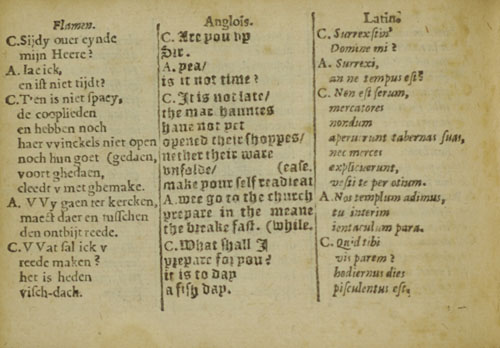 Flamen.
C. Sijdy ouer eynde
mijn Heere?
A. Iae ick,
en ist niet tijdt?
C. T'en is niet spaey,
de cooplieden
en hebben noch
haer vvinckels niet open
noch hun goet (gedaen,
voort ghedaen,
cleedt v met ghemake.
A. VVy gaen ter kercken,
maect daer en tusschen
den ontbijt reede.
C. VVat sal ick v
reede maken?
het is heden
visch-dach.
Anglois.
C. Are you vp
Sir.
A. yea/
is it not time?
C. It is not late/
the mar hauntes
haue not yet
opened their shoppes/
nether their ware
vnfolde/ (ease.
make your self readie at
A. wee go to the church
prepare in the meane
the breake fast. (while.
C. What shall I
prepare for you?
it is to day
a fish day.
Latin.
C. Surrexstin'
Domine mi?
A. Surrexi,
an ne tempus est?
C. Non est serum,
mercatores
nondum
aperuerunt tabernas suas,
nec merces
explicuerunt,
vesti te per otium.
A. Nos templum adimus,
tu interim
ientaculum para.
C. Quid tibi
vis parem?
hodiernus dies
pisculentus est.